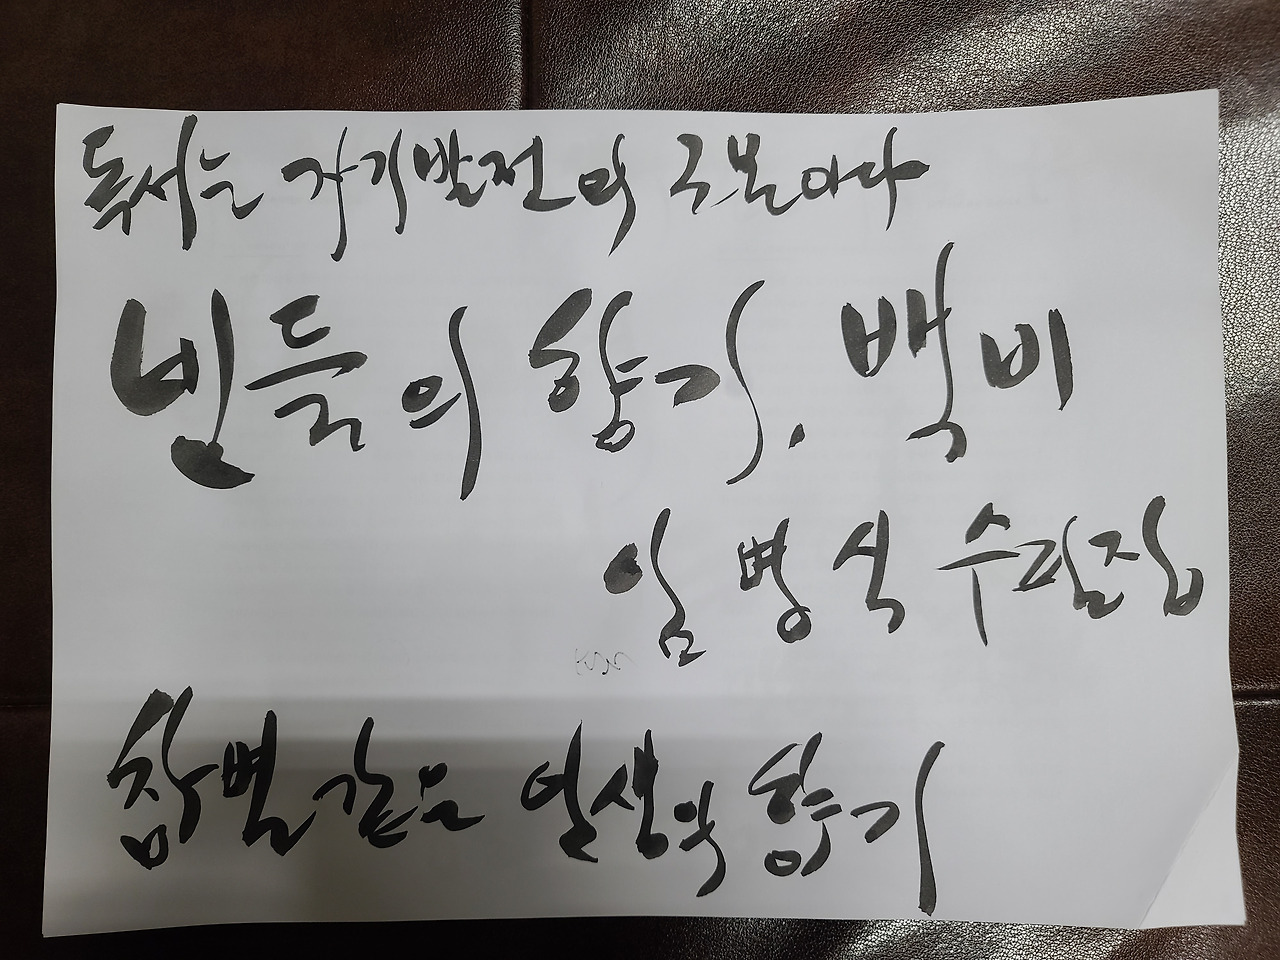 독서는 자기발전의 근본이다
빈들의 향기. 백비
임병식 수필집
참별같은 인생의 향기